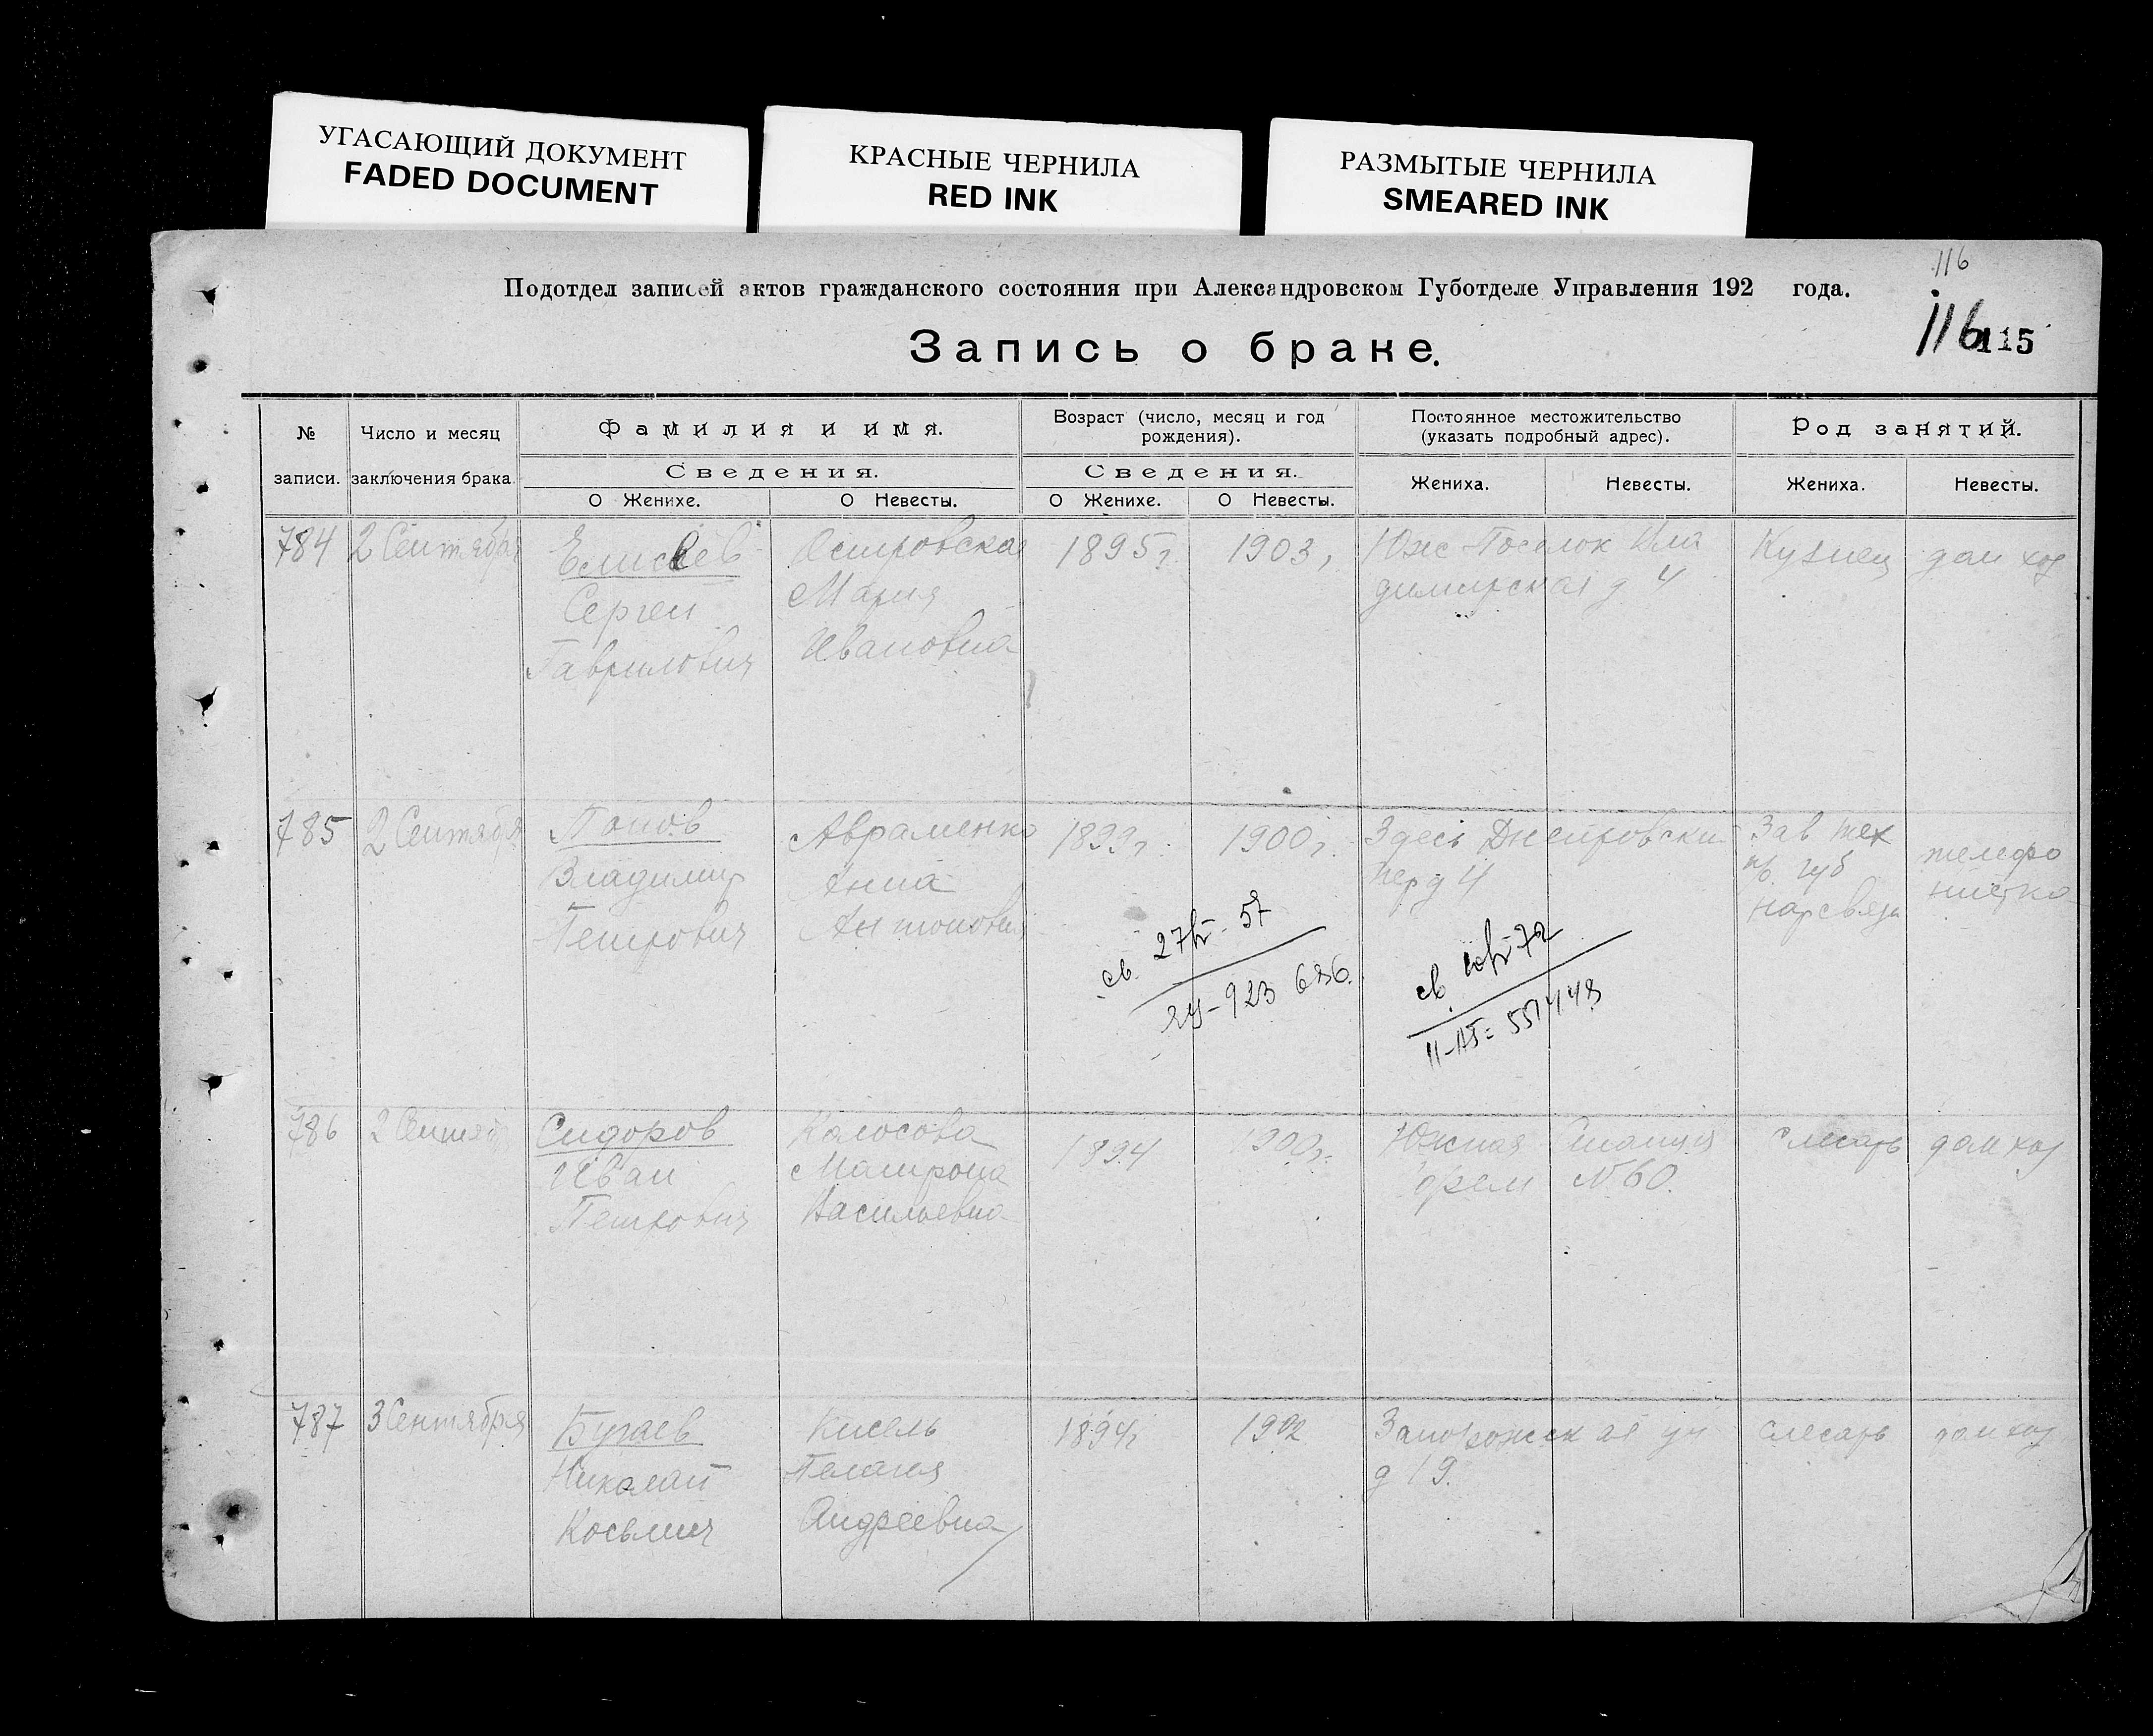 УГАСАЮЩИЙ ДОКУМЕНТ
FADED DOCUMENT
КРАСНЫЕ ЧЕРНИЛА
RED INK
РАЗМЫТЫЕ ЧЕРНИЛА
SMEARED INK
116
Подотдел записей актов гражданского состояния при Александровском Губотделе Управления 192 года.
116 115
Запись о браке.
№ записи.
Число и месяц заключения брака.
Фамилия и имя.
Сведения.
О Женихе.
О Невесты.
Возраст (число, месяц и год рождения).
Сведения.
О Женихе.
О Невесты.
Постоянное местожительство (указать подробный адрес).
Жениха.
Невесты.
Род занятий.
Жениха.
Невесты.
784
2 Сентября
Елисеев
Сергей
Гаврилович
Островская
Мария
Ивановна
1895г.
1903г
Южс Поселок Вла
димирская д 4
Кузнец
дом хоз
785
2 Сентября
Попов
Владимир
Петрович
Авраменко
Анна
Антоновна
1899г.
1900г.
Здесь Днепровский
пер д 4
Зав тех
п/о губ
нарсвязи
телефо
нистка
786
2 Сентяб
Сидоров
Иван
Петрович
Колосова
Матрона
Васильевна
1894
1900г.
Южная Станция
№ 60.
слесарь
дом хоз
787
3 Сентября
Бугаев
Николай
Косьмич
Кисель
Пелагея
Андреевна
1894г
1902
Запорожская ул
д 19.
слесарь
дом хоз